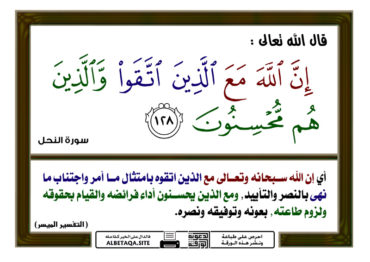 قال الله تعالى :
إِنَّ ٱللَّهَ مَعَ ٱلَّذِينَ ٱتَّقَوا۟ وَّٱلَّذِينَ
هُم مُّحْسِنُونَ ١٢٨
سورة النحل
أي إن الله سبحانه وتعالى مع الذين اتقوه بامتثال ما أمر واجتناب ما
نهى بالنصر والتأييد, ومع الذين يحسنون أداء فرائضه والقيام بحقوقه
ولزوم طاعته, بعونه وتوفيقه ونصره.
(التفسير الميسر)
فالدال على الخير كفاعله
ALBETAQA.SITE
احرص على طباعة
ونشر هذه الورقة